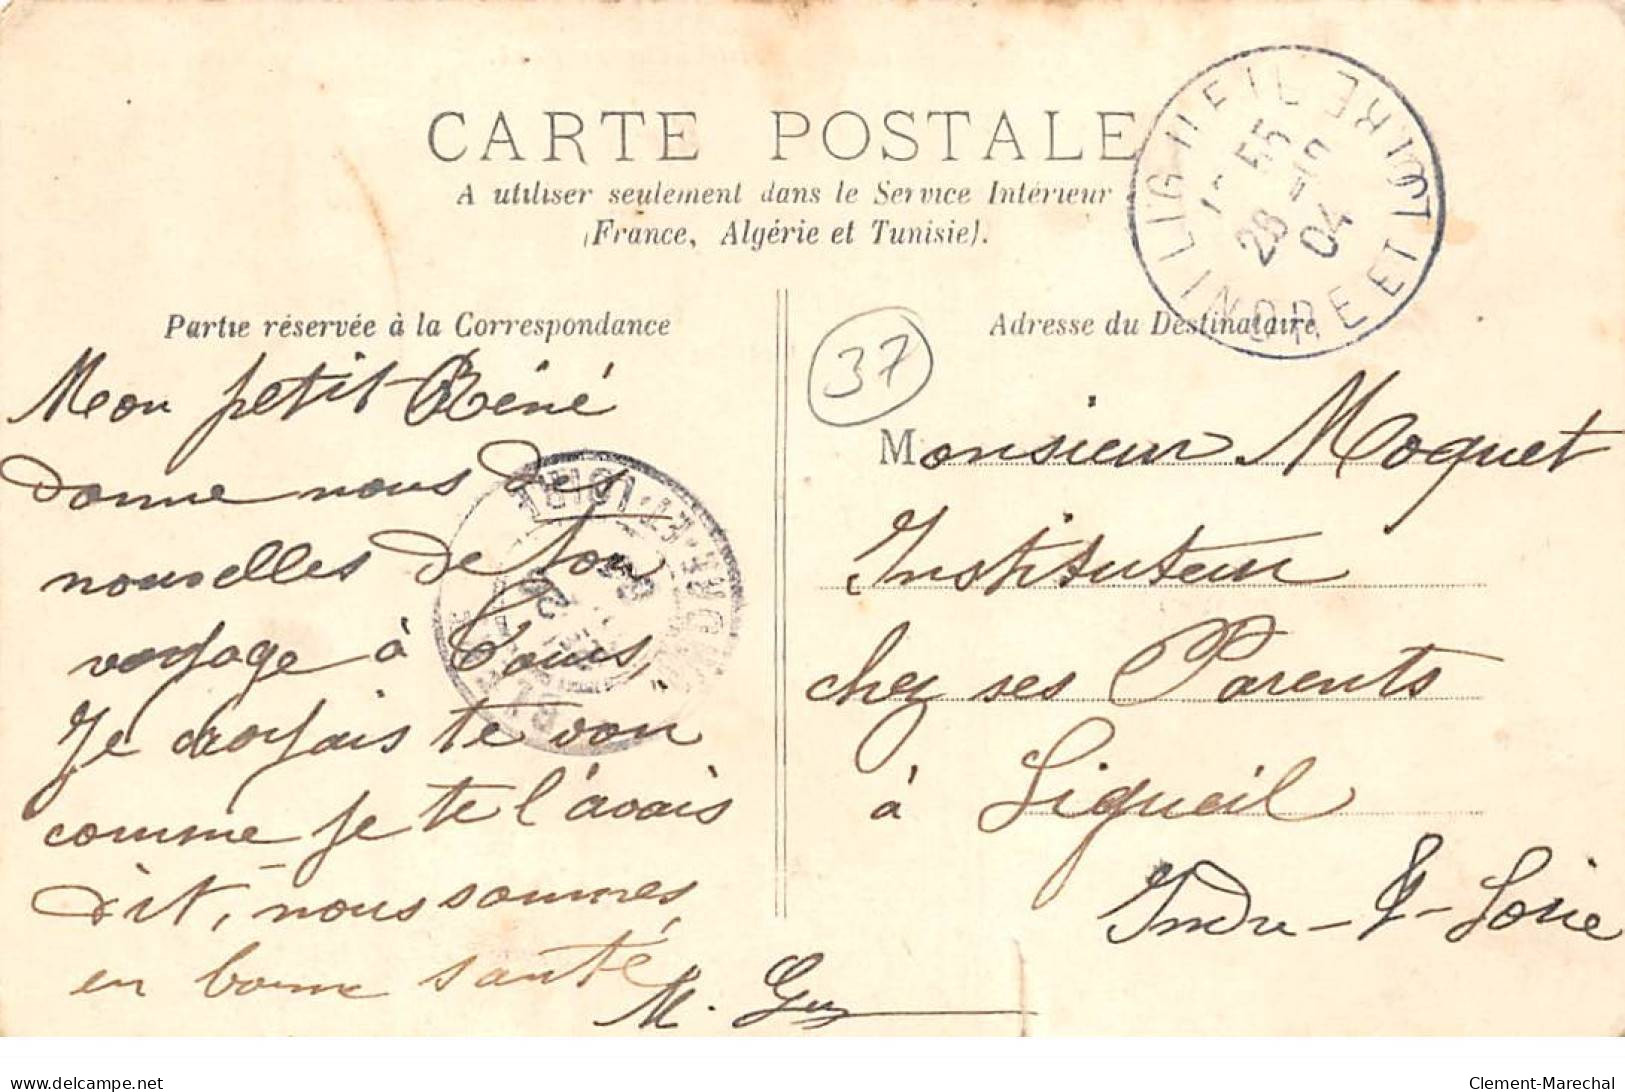 CARTE POSTALE
A utiliser seulement dans le Service Intérieur
(France, Algérie et Tunisie).
LIGUEIL
INDRE ET LOIRE
55
28
04
Partie réservée à la Correspondance
Mon petit Réné
donne nous des
nouvelles de ton
voyage à Tours,
Je croyais te voir
comme je te l'avais
dit, nous sommes
en bonne santé
M. Guy
37
Adresse du Destinataire
Monsieur Moquet
Instituteur
chez ses Parents
à Ligueil
Indre-&-Loire
ET LOIRE
delcampe.net
Clement-Marechal